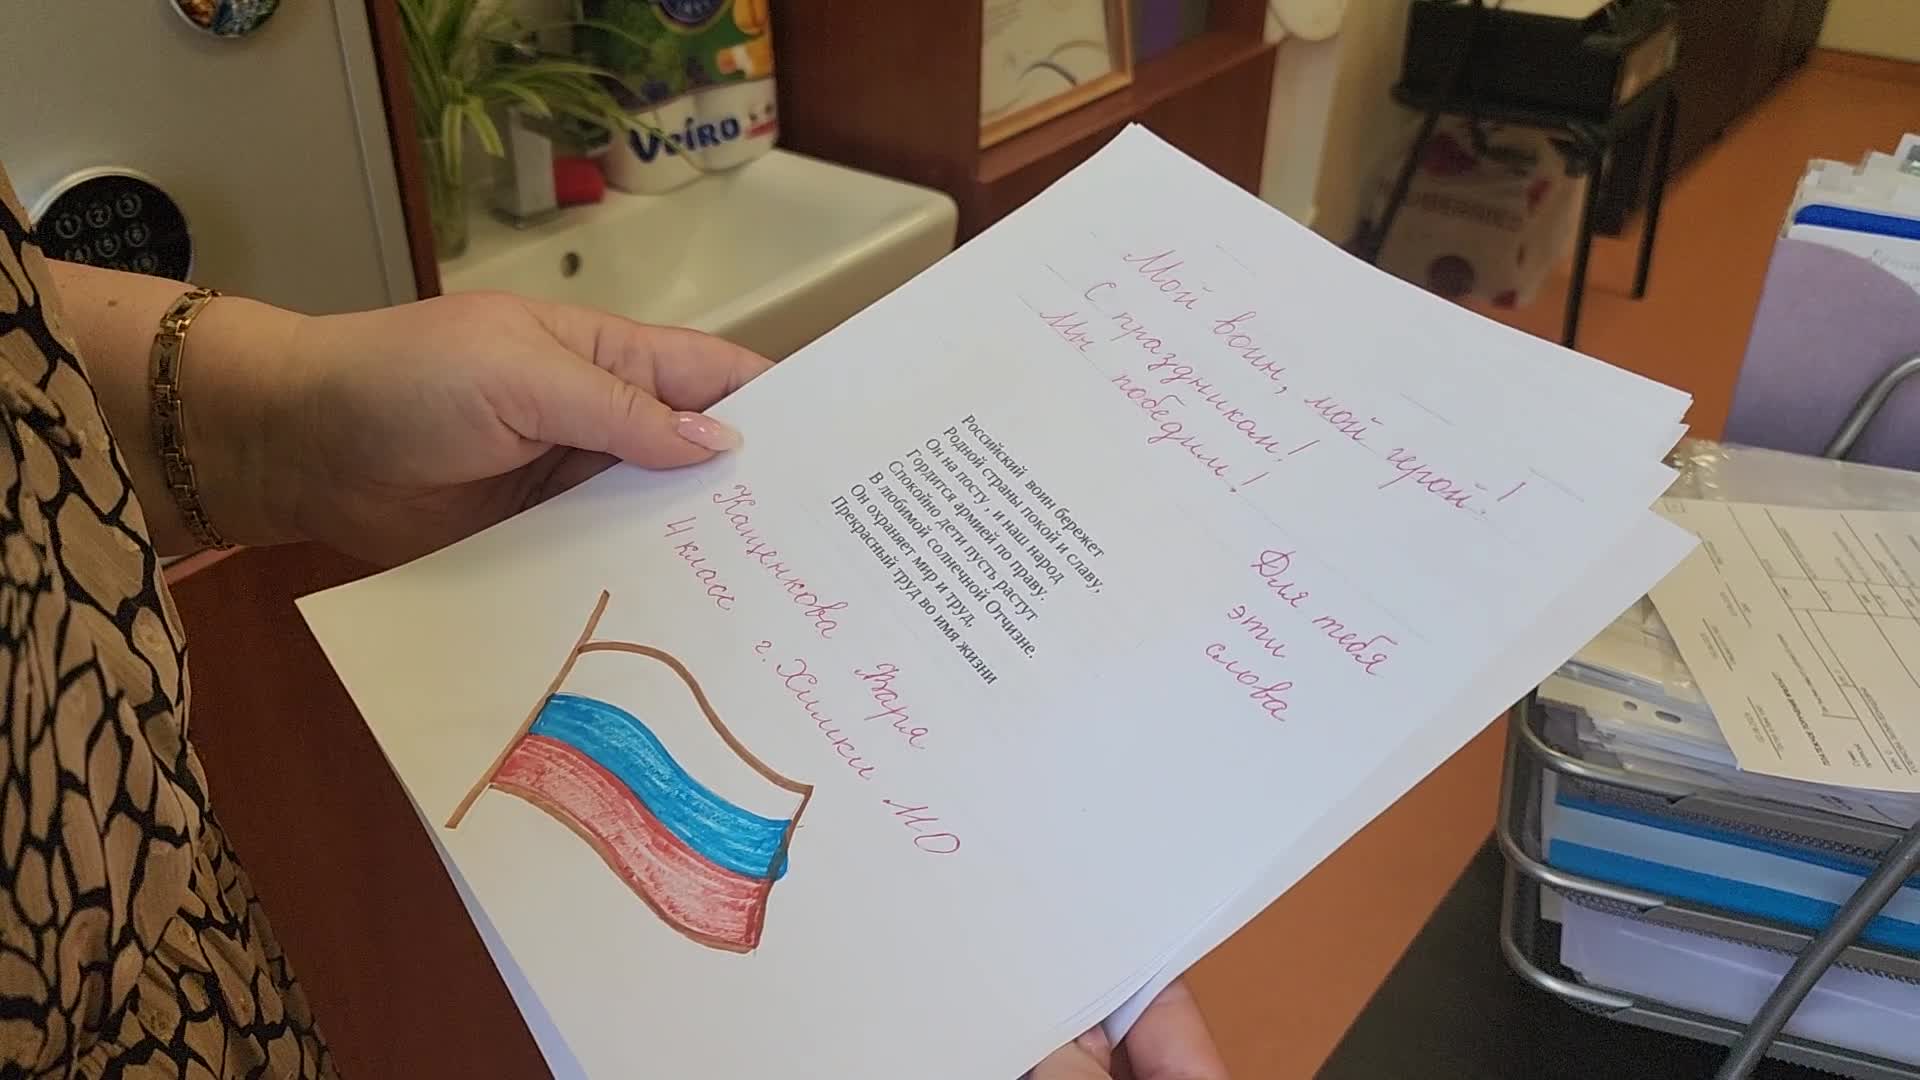 Мой воин, мой герой!
С праздником!
Мы победим!
Для тебя
эти
слова
Российский воин бережет
Родной страны покой и славу,
Он на посту, и наш народ
Гордится армией по праву.
Спокойно дети пусть растут
В любимой солнечной Отчизне.
Он охраняет мир и труд,
Прекрасный труд во имя жизни
Каценкова Варя
4 класс г. Химки МО
Veiro
1 2 3
4 5 6